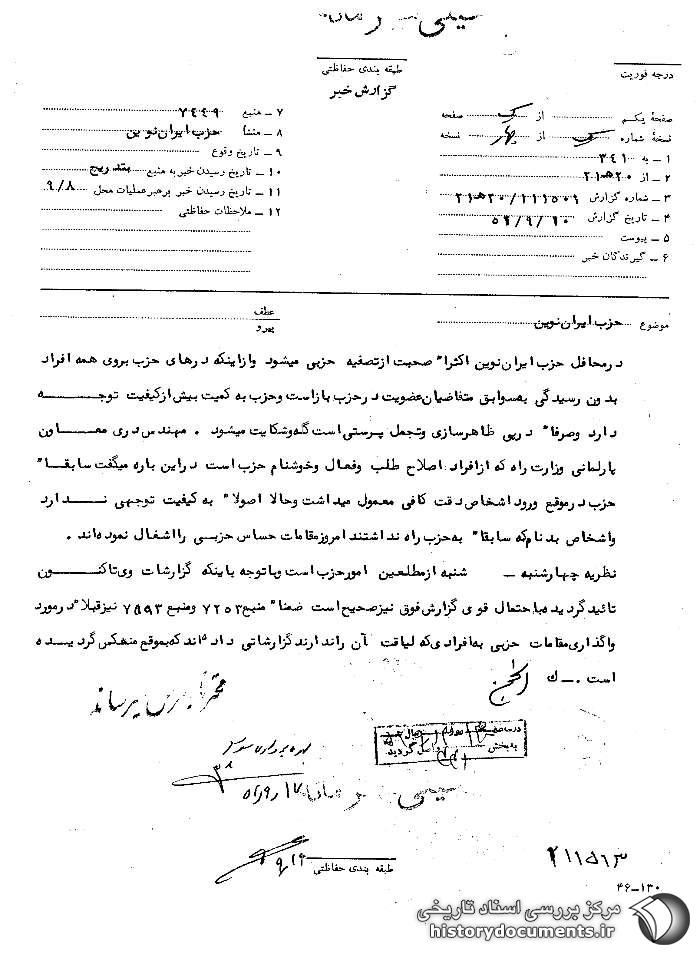 درجه فوریت
طبقه بندی حفاظتی
گزارش خبر
صفحهٔ یکم از یک صفحه
نسخهٔ شماره یک از چهار نسخه
۱ ــ به ۳۴۱
۲ ــ از ۲۰ﻫ۲۱
۳ ــ شماره گزارش ۲۰/۱۱۱۵۰۹ﻫ۲۱
۴ ــ تاریخ گزارش ۵۲/۹/۱۰
۵ ــ پیوست
۶ ــ گیرندگان خبر
۷ ــ منبع ۷۴۴۹
۸ ــ منشأ حزب ایران نوین
۹ ــ تاریخ وقوع
۱۰ ــ تاریخ رسیدن خبر به منبع بتدریج
۱۱ ــ تاریخ رسیدن خبر برهبر عملیات محل ۹/۸
۱۲ ــ ملاحظات حفاظتی
موضوع حزب ایران نوین
عطف
پیرو
در محافل حزب ایران نوین اکثرا" صحبت از تصفیه حزبی میشود و از اینکه درهای حزب بروی همه افراد
بدون رسیدگی به سوابق متقاضیان عضویت در حزب باز است و حزب به کمیت بیش از کیفیت توجه
دارد و صرفا" در پی ظاهرسازی و تجمل پرستی است گله و شکایت میشود . مهندس دری معاون
پارلمانی وزارت راه که از افراد اصلاح طلب و فعال و خوشنام حزب است در این باره میگفت سابقا"
حزب در موقع ورود اشخاص دقت کافی معمول میداشت و حالا اصولا" به کیفیت توجهی ندارد
و اشخاص بدنام که سابقا" به حزب راه نداشتند امروز مقامات حساس حزبی را اشغال نموده‌اند .
نظریه چهارشنبه ــ شنبه از مطلعین امور حزب است و با توجه باینکه گزارشات وی تاکنون
تائید گردیده با احتمال قوی گزارش فوق نیز صحیح است ضمنا" منبع ۷۲۵۳ و منبع ۷۵۹۳ نیز قبلا" در مورد
واگذاری مقامات حزبی به افرادی که لیاقت آن را ندارند گزارشاتی داده‌اند که بموقع منعکس گردیده
است . ــ ک
به بخش واصل گردید
طبقه بندی حفاظتی
۲۱۱۵۱۳
۴۶ــ۱۳۰
مرکز بررسی اسناد تاریخی
historydocuments.ir